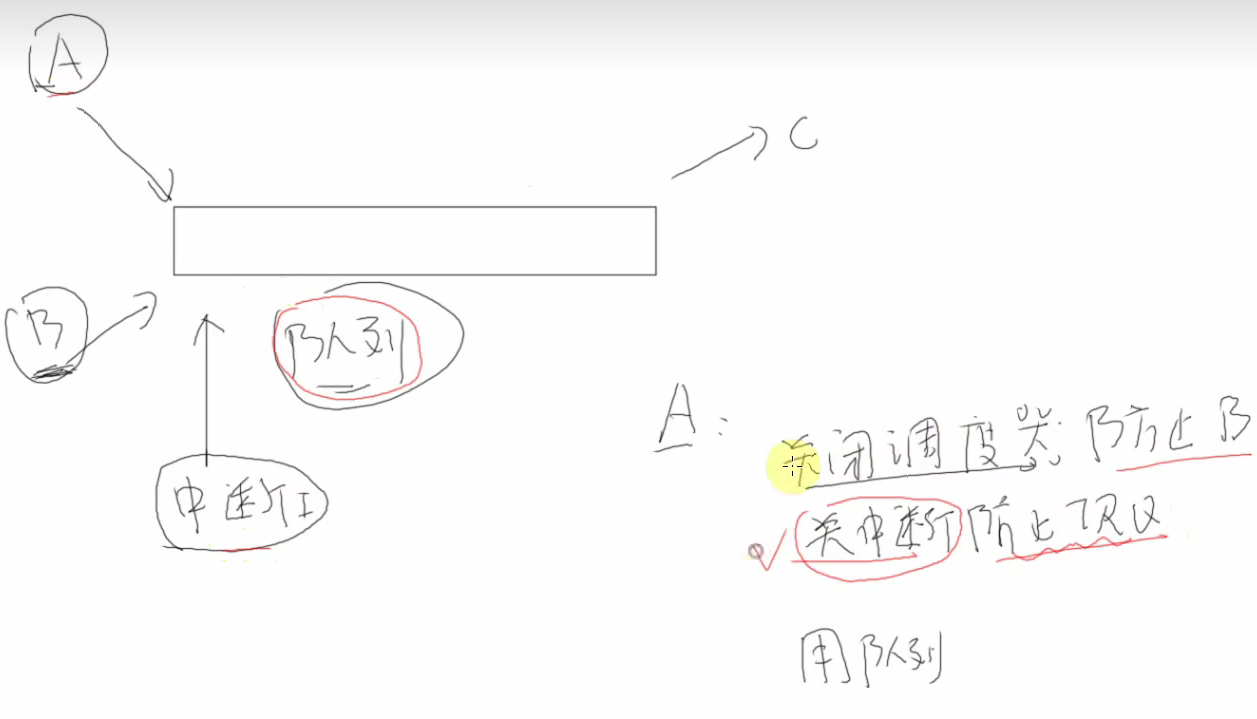 A
C
B
队列
中断I
A:
关闭调度器 防止B
关中断 防止
用队列